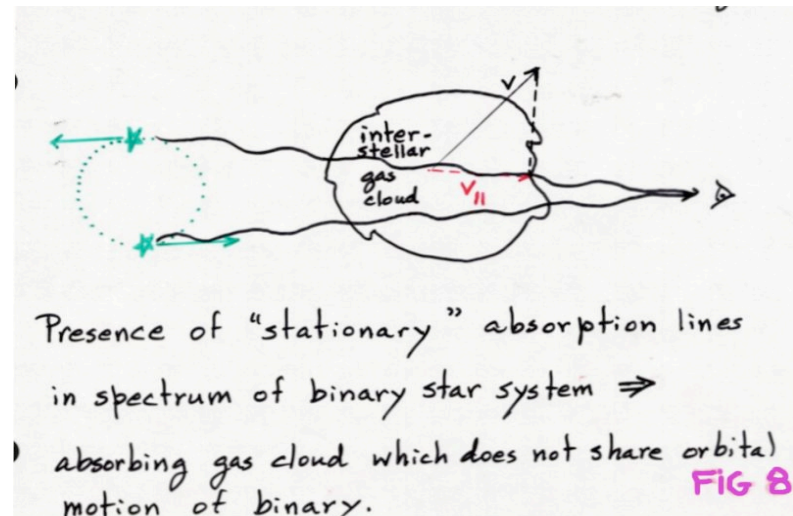 v
inter-
stellar
gas
cloud
V||
Presence of "stationary" absorption lines
in spectrum of binary star system ⇒
absorbing gas cloud which does not share orbital
motion of binary.
FIG 8